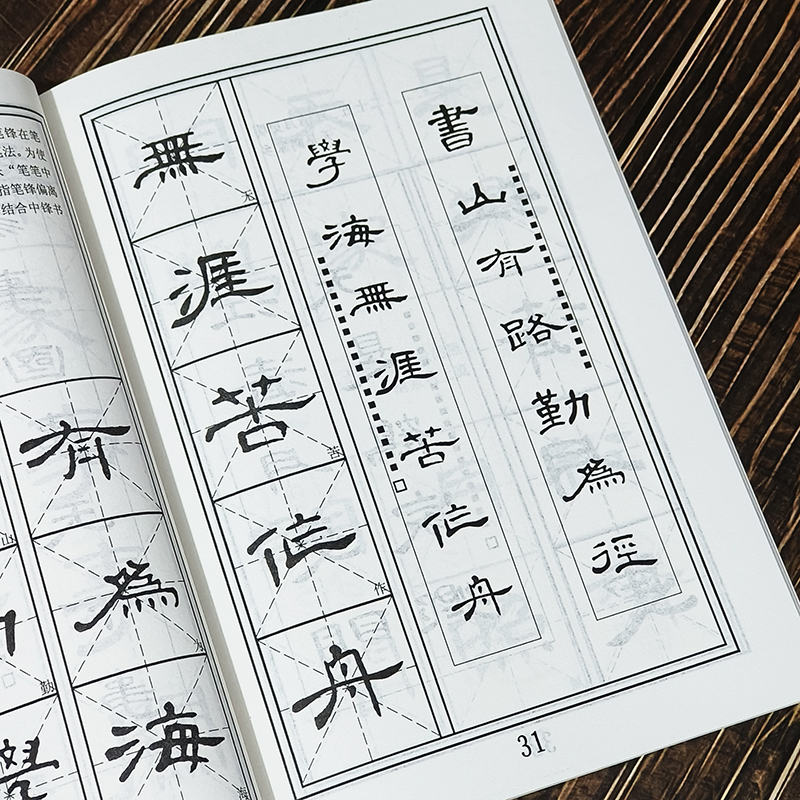 笔锋在笔
法。为使
“笔笔中
指笔锋偏离
结合中锋书
有為海
山
勤
學
書山有路勤為徑
學海無涯苦作舟
無涯苦作舟
无
作
31